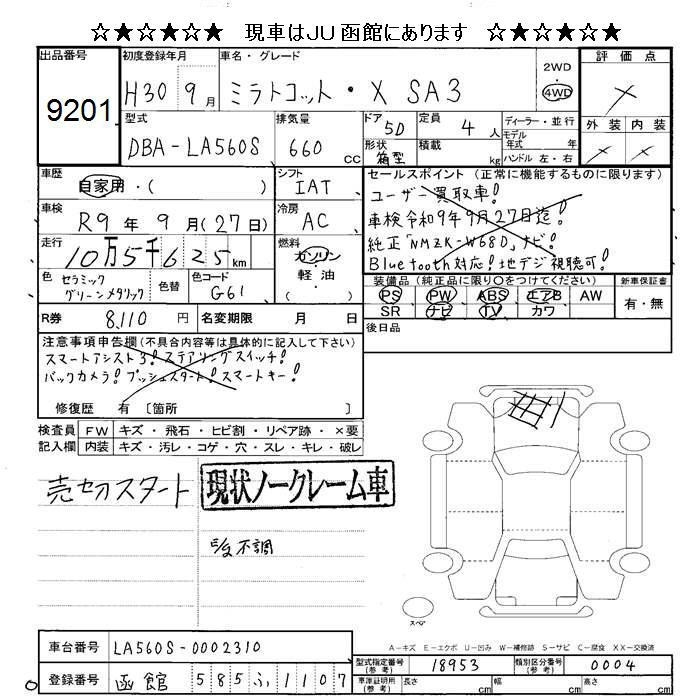 ☆★☆★☆★☆ 現車はJU函館にあります ☆★☆★☆★☆
出品番号
9201
初度登録年月
H30 9月
車名・グレード
ミラトコット・X SA3
2WD
・
4WD
評価点
外装 内装
型式
DBA-LA560S
排気量
660 CC
ドア 5D
形状 箱型
定員 4人
積載 kg
ディーラー・並行
モデル年式 年式
ハンドル 左・右
車歴
自家用・( )
シフト
IAT
車検
R9年9月(27日)
冷房
AC
走行
10万5千625km
燃料
ガソリン
軽油
( )
色 セラミックグリーンメタリック
色替
色コード
G61
セールスポイント(正常に機能するものに限ります)
ユーザー買取車!
車検令和9年9月27日迄!
純正「NMZK-W68D」ナビ!
Bluetooth対応!地デジ視聴可!
装備品(純正品に限り○をつけてください)
PS PW ABS エアB AW
SR ナビ TV カワ
新車保証書
有・無
R券 8,110円 名変期限 月 日
後日品
注意事項申告欄(不具合内容等は具体的に記入して下さい)
スマートアシスト3!ステアリングスイッチ!
バックカメラ!プッシュスタート!スマートキー!
修復歴 有〔箇所 〕
検査員記入欄
FW キズ・飛石・ヒビ割・リペア跡・×要
内装 キズ・汚レ・コゲ・穴・スレ・キレ・破レ
売切スタート
現状ノークレーム車
不調
スペア
A-キズ E-エクボ U-凹み W-補修跡 S-サビ C-腐食 XX-交換済
車台番号 LA560S-0002310
登録番号 函館 585ふ1107
型式指定番号(参考) 18953
類別区分番号(参考) 0004
車庫証明用(参考) 長さ cm 幅 cm 高さ cm